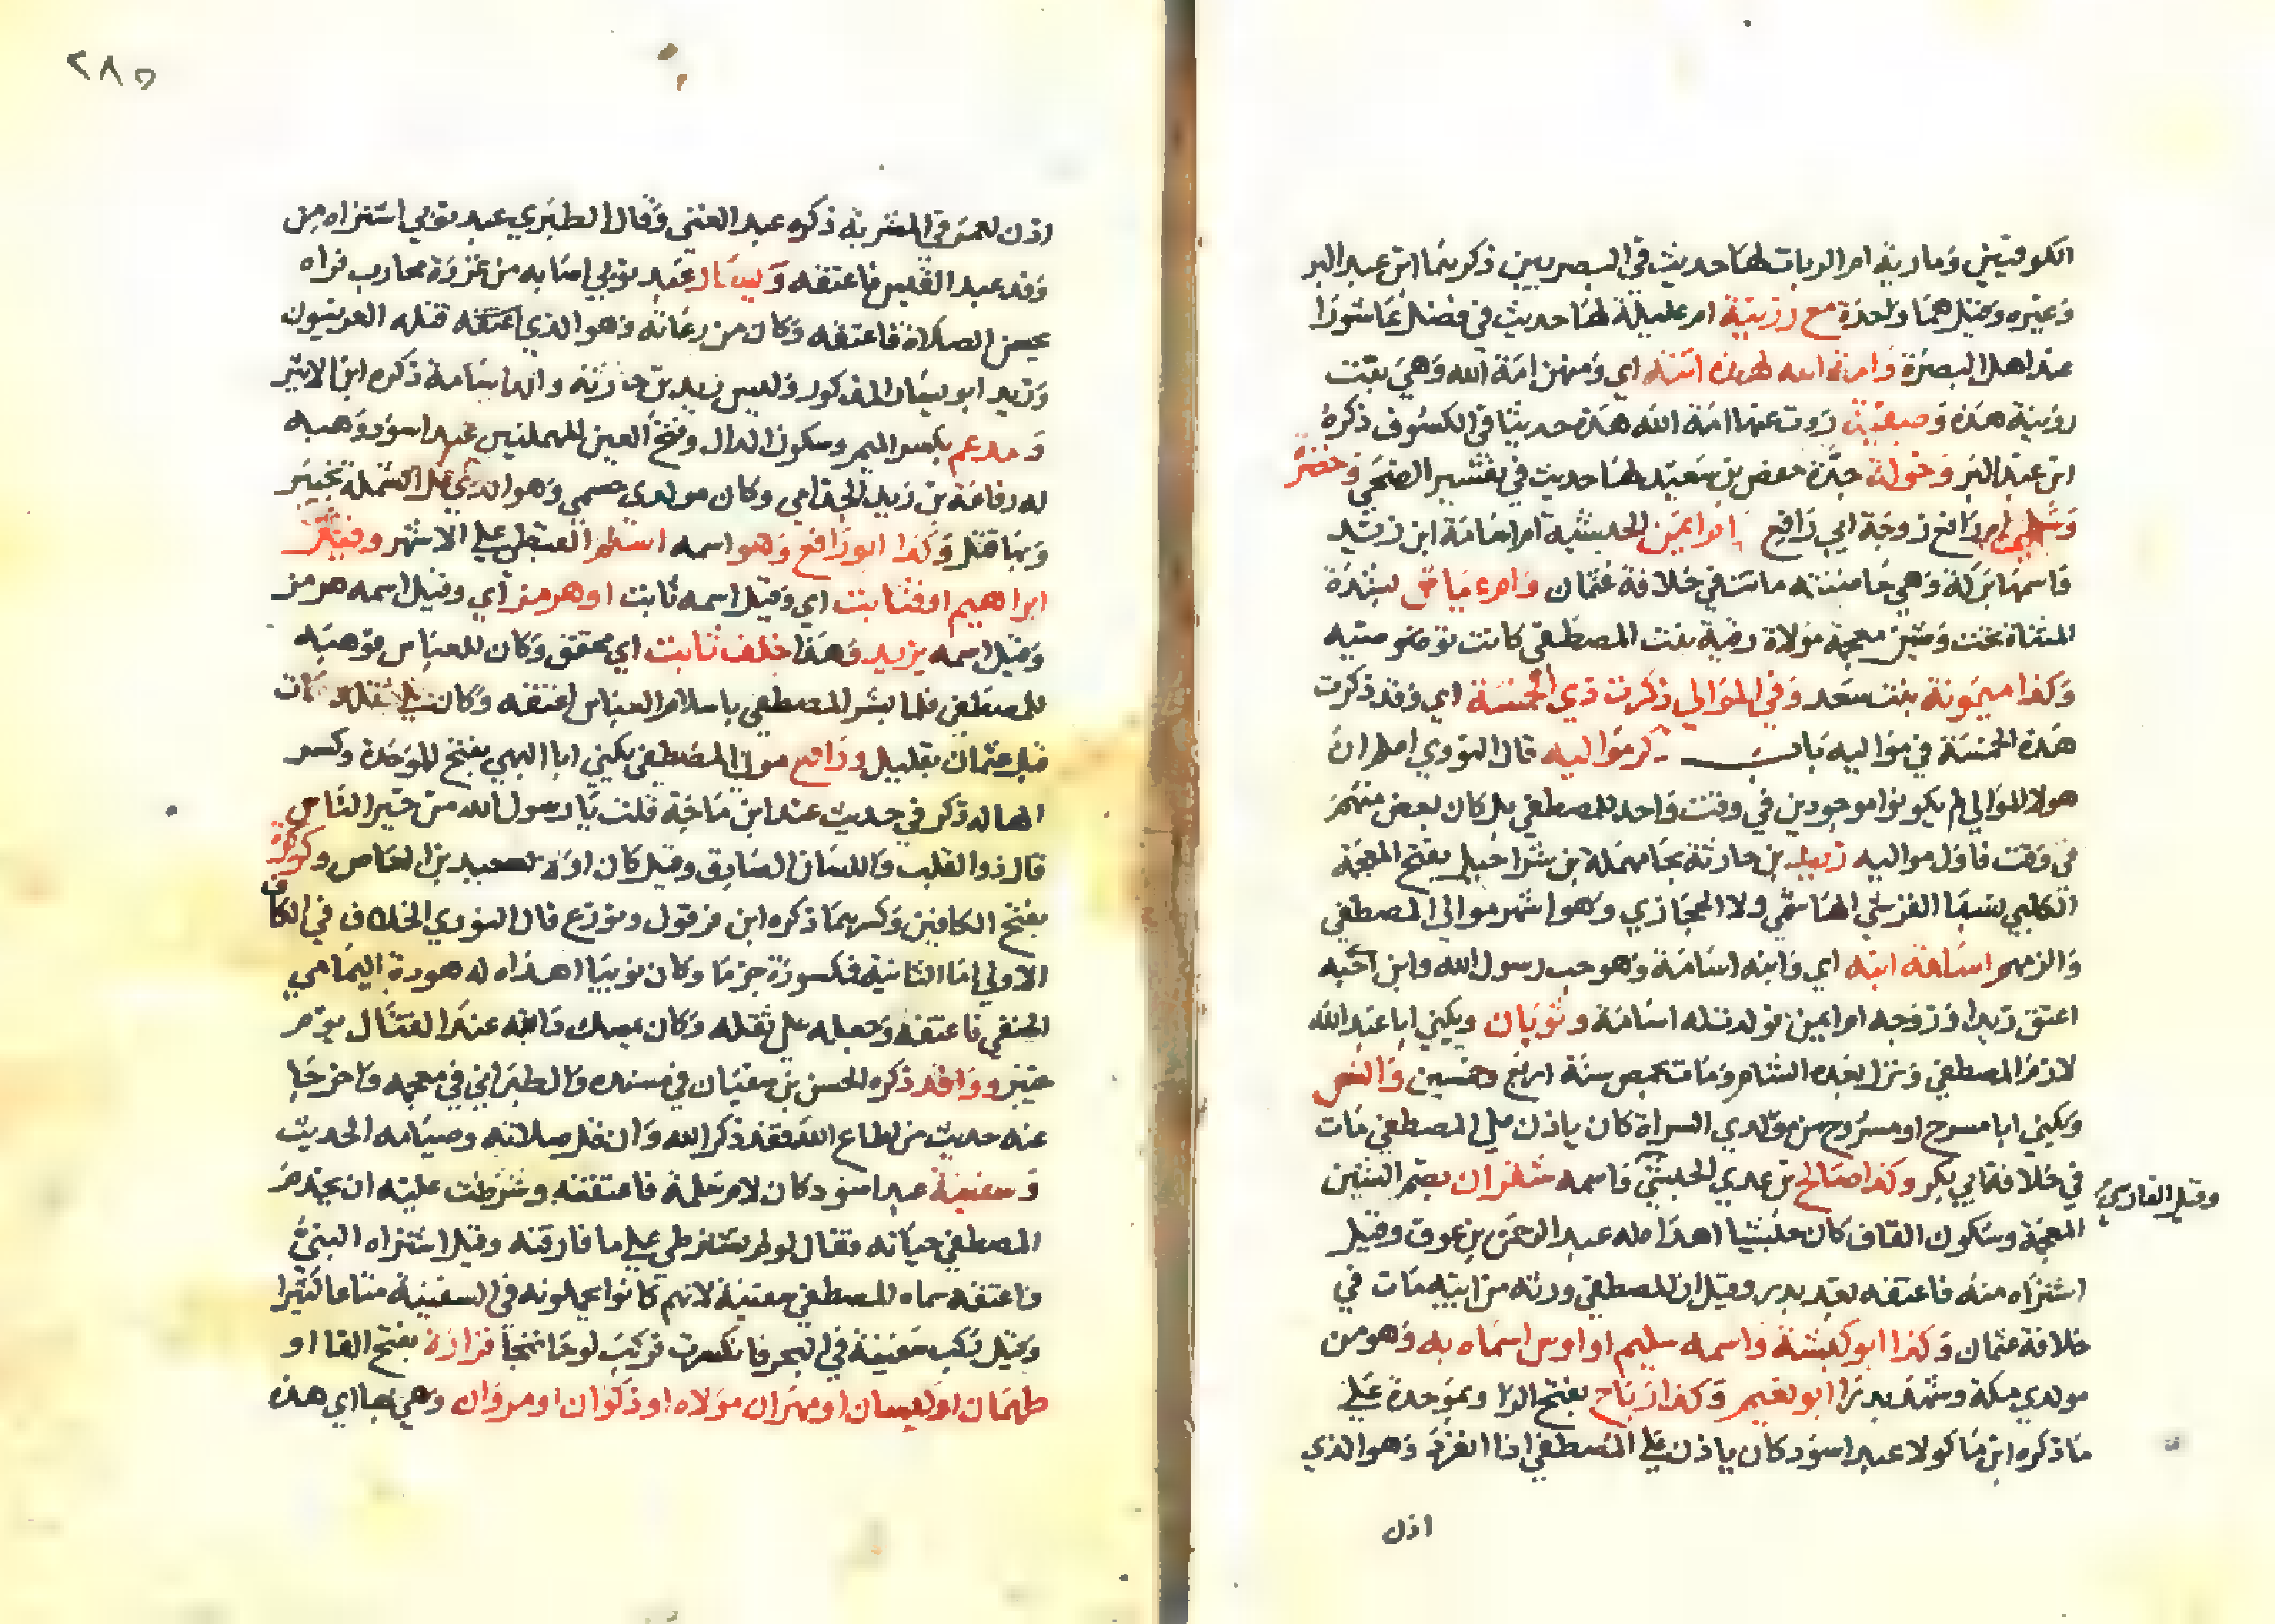 الكوفيين ومارية ام الرباب لها حديث في البصريين ذكرهما ابن عبد البر
وغيره وقيل هما واحدة مع رزينة ام عليلة لها حديث في فضل عاشورا
عند اهل البصرة وامة الله لهذه ابنة اي ومنهن امة الله وهي بنت
رزينة هذه وصفية روت عنها امة الله هذه حديثا في الكسوف ذكره
ابن عبد البر وخولة جدة حفص بن سعيد لها حديث في تفسير الضحى وخضرة
وسلمى ام رافع زوجة ابي رافع ام ايمن الحبشية ام اسامة ابن زيد
فاسمها بركة وهي حاضنته ماتت في خلافة عثمان وام عياش بشدة
المثناة تحت وشين معجمة مولاة رقية بنت المصطفى كانت توضؤ صبيه
وكذا ميمونة بنت سعد وفي الموالي ذكرت ذي الخمسة اي وقد ذكرت
هذه الخمسة في مواليه باب ذكر مواليه قال النووي اعلم ان
هولا الموالي لم يكونوا موجودين في وقت واحد للمصطفى بل كان لبعض منهم
في وقت فاول مواليه زيد بن حارثة بحا مهملة بن شراحيل بفتح المعجمة
الكلبي نسبا القرشي الهاشمي ولا الحجازي وهو اشهر موالي المصطفى
والزمهم اسامة ابنه اي وابنه اسامة وهو حب رسول الله وابن حبه
اعتق زيدا وزوجه ام ايمن فولدت له اسامة وثوبان ويكنى ابا عبد الله
لازم المصطفى ونزل بعده الشام ومات بحمص سنة اربع وخمسين وانسى
ويكنى ابا مسرح او مسروح من مولدي السراة كان ياذن على المصطفى مات
في خلافة ابي بكر وكذا صالح بن عدي الحبشي واسمه شقران بضم الشين
وقيل الفارسي
المعجمة وسكون القاف كان حبشيا اهداه له عبد الرحمن بن عوف وقيل
اشتراه منه فاعتقه بعد بدر وقيل ان المصطفى ورثه من ابيه مات في
خلافة عثمان وكذا ابو كبشة واسمه سليم او اوس اسماه به وهو من
مولدي مكة وشهد بدرا ابو لقيم وكذا رباح بفتح الرا وبموحدة على
ما ذكره ابن ماكولا عبد اسود كان ياذن على المصطفى اذا انفرد وهو الذي
اذن
٢٨٥
اذن لعمر في المشربة ذكره عبد الغني وقال الطبري عبد نوبي اشتراه من
وفد عبد القيس فاعتقه ويسار عبد نوبي اصابه من غزوة محارب فراه
يحسن الصلاة فاعتقه وكان من رعاته وهو الذي قتله العرنيون
وزيد ابو يسار المذكور وليس زيد بن حارثة والد اسامة ذكره ابن الاثير
ومدعم بكسر الميم وسكون الدال وفتح العين المهملتين عبد اسود وهبه
له رفاعة بن زيد الجذامي وكان مولدي حسمي وهو الذي غل الشملة بخيبر
وبها قتل وكذا ابو رافع وهو اسمه اسلم القبطي على الاشهر وقيل
ابراهيم او فثابت اي وقيل اسمه ثابت او هرمز اي وقيل اسمه هرمز
وقيل اسمه يزيد وهذا خلف ثابت اي محقق وكان للعباس فوهبه
للمصطفى فلما بشر المصطفى باسلام العباس اعتقه وكان على ثقله مات
قبل عثمان بقليل ورافع مولى المصطفى يكنى ابا البهي بفتح الموحدة وكسر
الها له ذكر في حديث عند ابن ماجة قلت يا رسول الله من خير الناس
قال ذو القلب واللسان الصادق وقيل كان اولا لسعيد بن العاص وكركرة
بفتح الكافين وكسرهما ذكره ابن قرقول ونوزع قال النووي الخلاف في الكاف
الاولى اما الثانية فمكسورة جزما وكان نوبيا اهداه له هوذة اليمامي
الحنفي فاعتقه وجعله على ثقله وكان يمسك دابته عند القتال يوم
خيبر وواقد ذكره الحسن بن سفيان في مسنده والطبراني في معجمه واخرجا
عنه حديث من اطاع الله فقد ذكر الله وان قل صلاته وصيامه الحديث
وسفينة عبد اسود كان لام سلمة فاعتقته وشرطت عليه ان يخدم
المصطفى حياته فقال لو لم تشترطي علي ما فارقته وقيل اشتراه النبي
فاعتقه سماه المصطفى سفينة لانهم كانوا يحملونه في السفينة متاعا كثيرا
وقيل ركب سفينة في البحر فانكسرت فركب لوحا فنجا فزارة بفتح الفا او
طهمان او كيسان او مهران مولاه او ذكوان او مروان وهي بها اي هذه